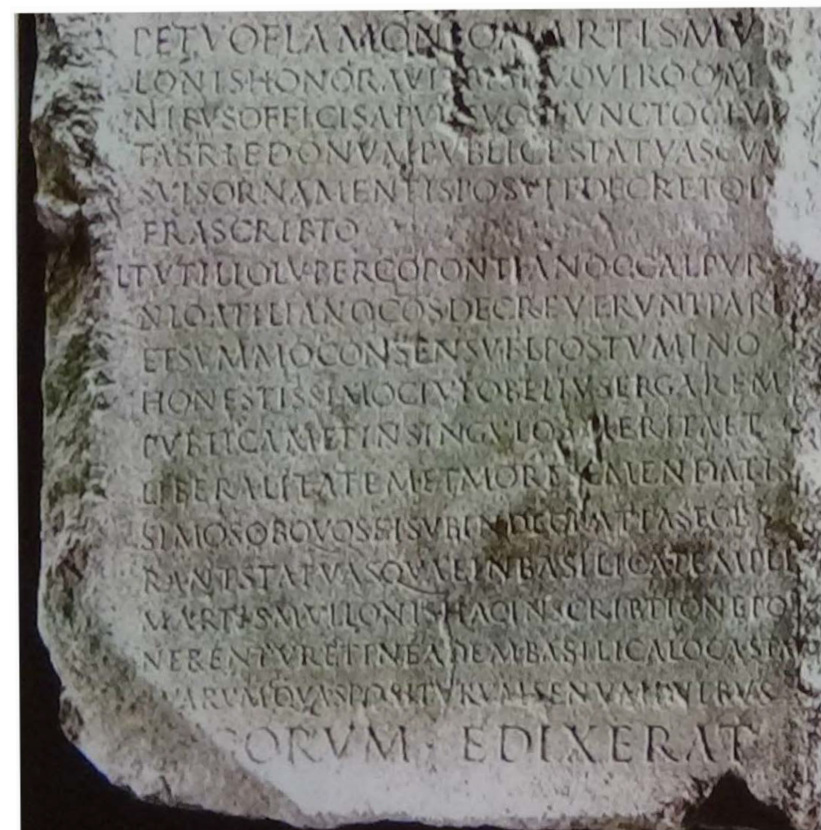 PETVOFLAMONIOMARTISMV
LONISHONORAVIT VIROOM
NIBVSOFFICISAPVTSVOSFVNCTOCIVI
TASRIEDONVMPVBLICESTATVASCVM
SVISORNAMENTISPOSVITDECRETOI
FRASCRIBTO
LTVTILIOLVPERCOPONTIANOCCALPVR
NIOATILIANOCOSDECREVERVNTPARI
ETSVMMOCONSENSVTLPOSTVMINO
HONESTISSIMOCIVIOBEIIVSERGAREM
PVBLICAMETINSINGVLOSMERITAET
LIBERALITATEMETMORESEMENDATIS
SIMOSOBQVOSEISVBINDEGRATIASEGE
RANTSTATVASQVAEINBASILICATEMPLI
MARTISMVLLONISHACINSCRIBTIONEPO
NERENTVRETINEADEMBASILICALOCASTAT
VARVMQVASPOSITVRVMSENVMINIBVS
PAGORVM EDIXERAT